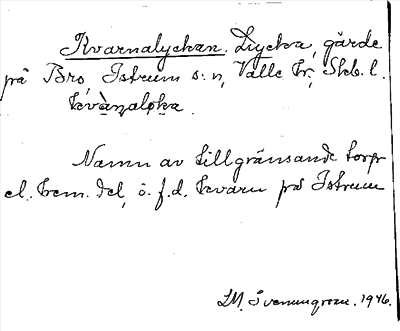 Kvarnalyckan. Lycka, gärde
på Bro, Istrum s:n, Valle hr, Skb. l.
kvà̱ṇaḷøka.
Namn av tillgränsande torp
el. hem. del, o. f.d. kvarn på Istrum
1946.